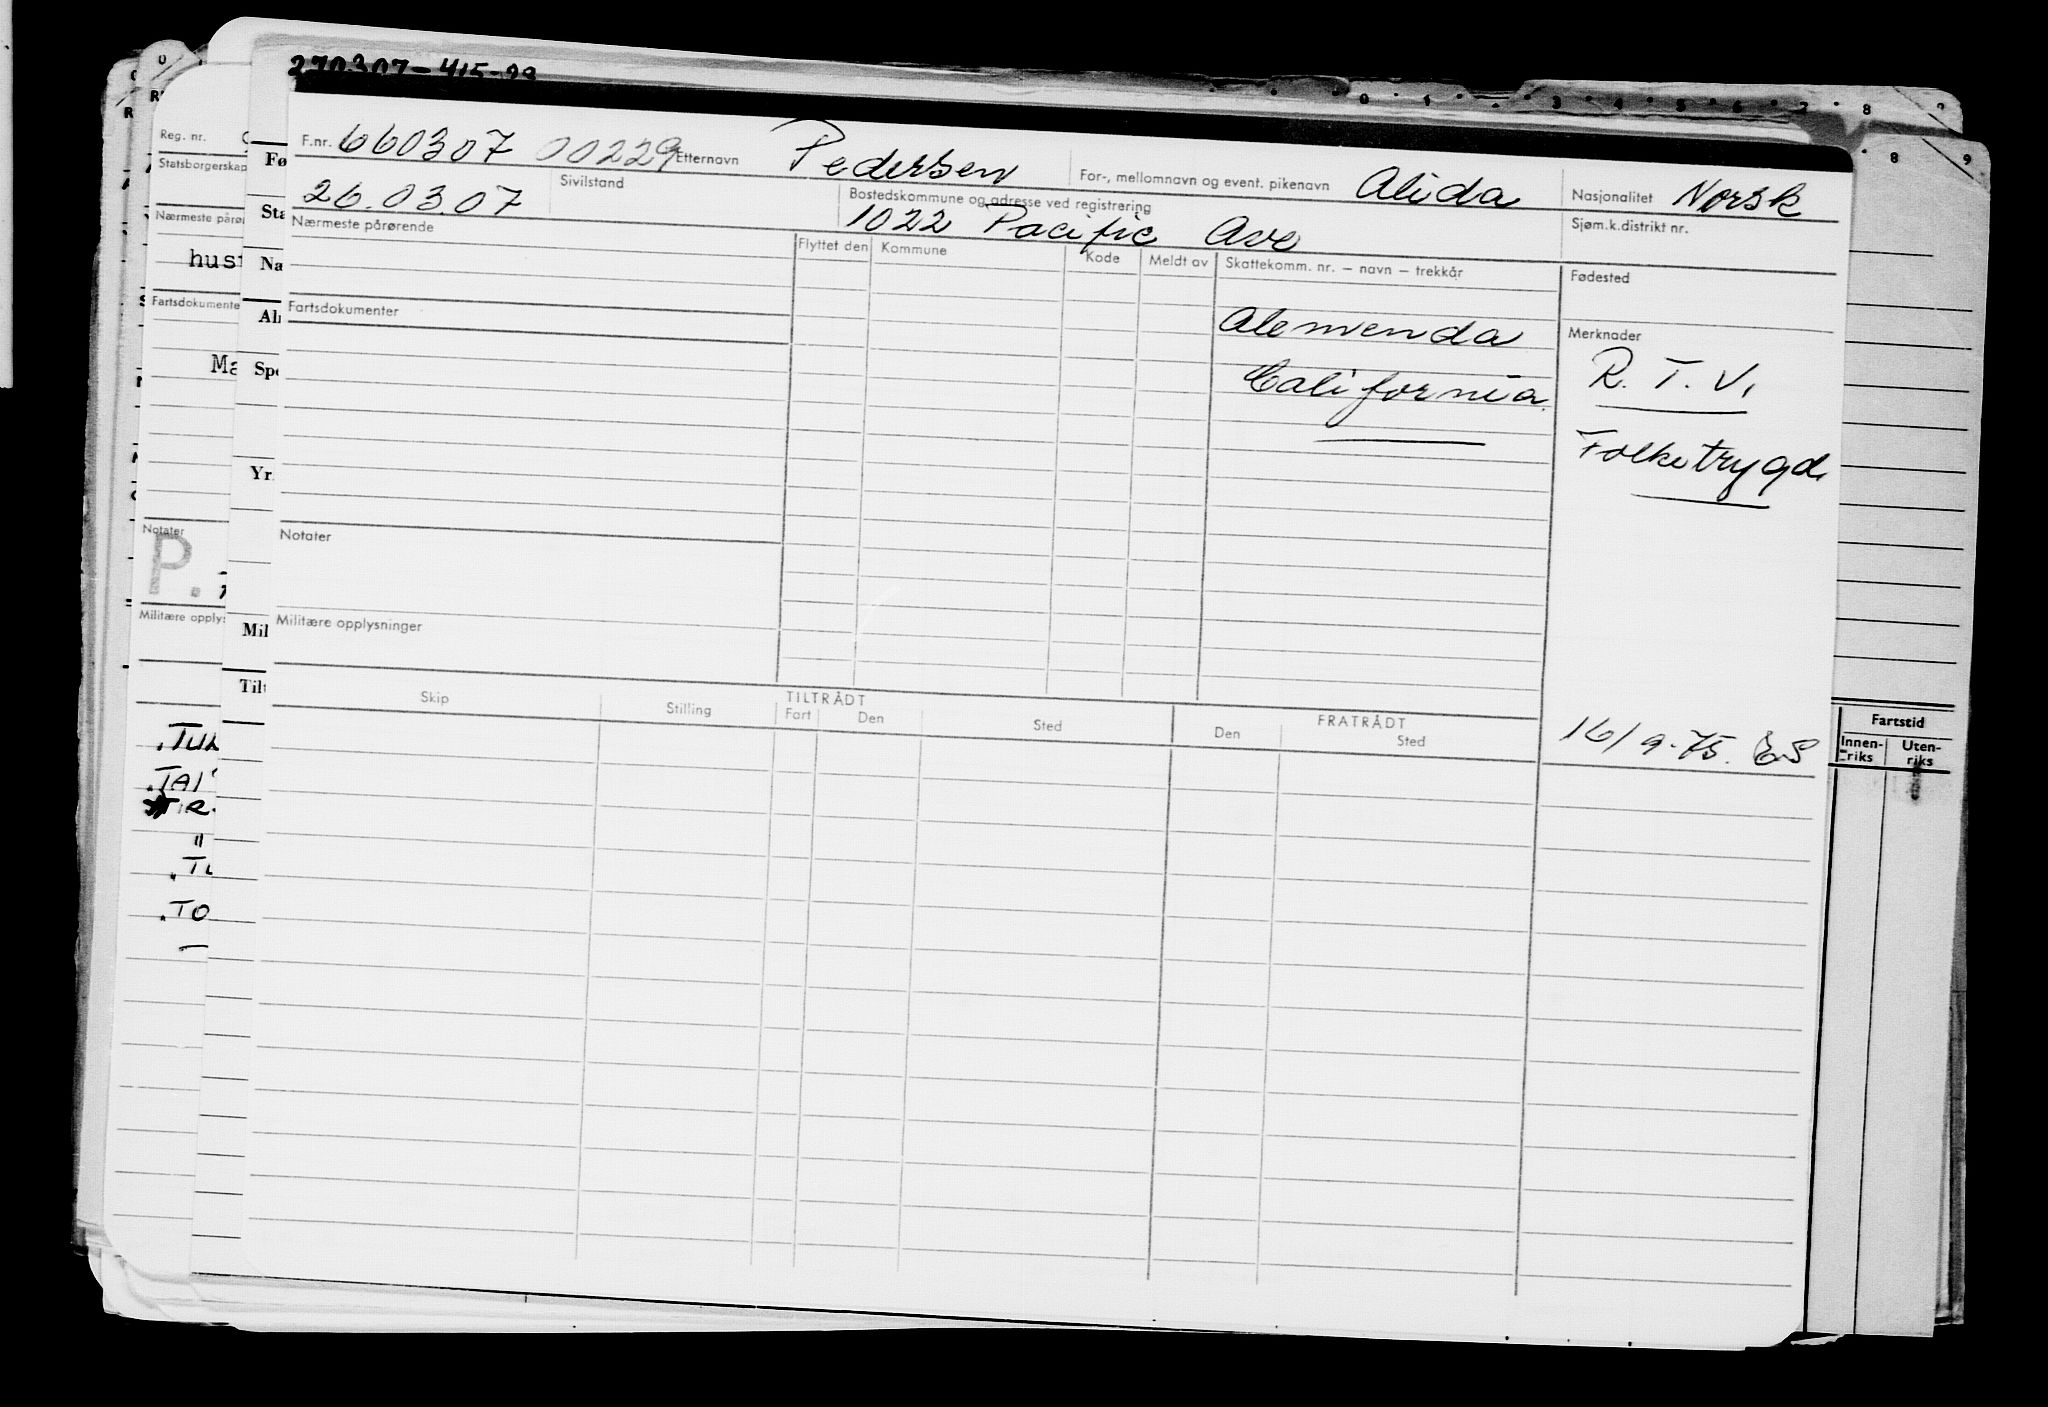 270307-415-29
F.nr. 660307 00229 Etternavn Pedersen For-, mellomnavn og event. pikenavn Alida Nasjonalitet Norsk
26.03.07 Sivilstand Bostedskommune og adresse ved registrering 1022 Pacific Ave Sjøm.k.distrikt nr.
Nærmeste pårørende Flyttet den Kommune Kode Meldt av Skattekomm. nr. – navn – trekkår Fødested
Fartsdokumenter Alemenda Merknader
California. R. T. V.
Folketrygd.
Notater
Militære opplysninger
TILTRÅDT FRATRÅDT
Skip Stilling Fart Den Sted Den Sted 16/9-75.
Reg. nr.
Statsborgerskap
Nærmeste pårør
hust
Fartsdokumente
Ma
Notater
P.
Militære opplys
.TO
Fø
Sta
Na
Aln
Spe
Yr.
Mil
Tilt
0 1 3 4 5 6 7 8 9
8 9
Fartstid
Innen-riks Uten-riks